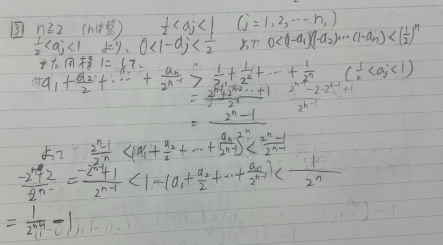 [3] n≧2 (nは整) 1/2<aj<1 (j=1,2,…n,)
1/2<aj<1 より、0<1-aj<1/2 よって 0<(1-a1)(1-a2)…(1-an)<(1/2)^n
また同様にして、
a1+a2/2+…+an/2^(n-1) > 1/2+1/2^2+…+1/2^n (1/2<aj<1)
= (2^(n-1)+2^(n-2)…+1)/2^n
= (2^n-1)/2^n
よって (2^n-1)/2^n < (a1+a2/2+…+an/2^(n-1)) < (2^n-1)/2^(n-1)
(-2^n+2)/2^n = (-2^(n-1)+1)/2^(n-1) < 1-(a1+a2/2+…+an/2^(n-1)) < 1/2^n
= 1/2^(n-1) -1